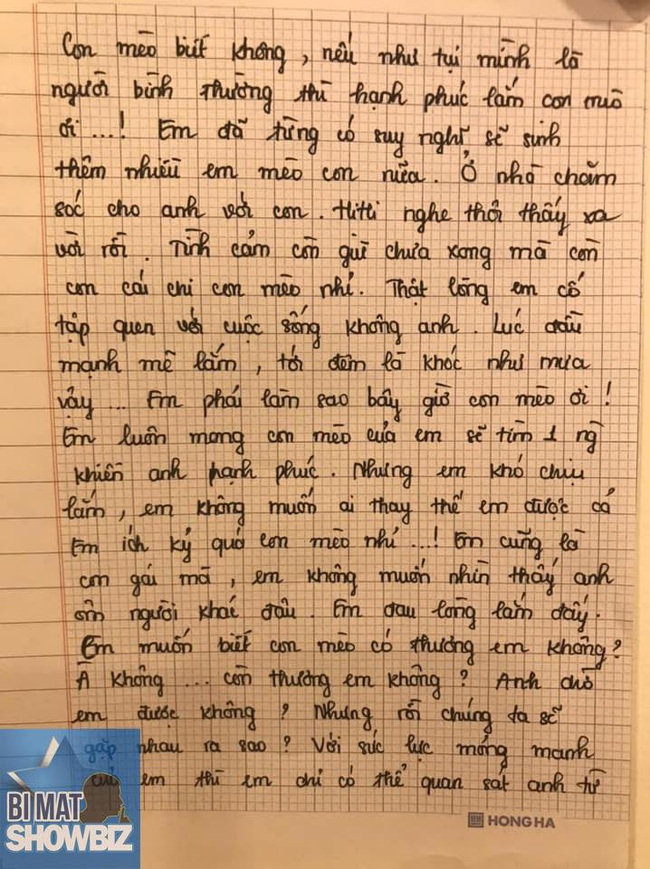 Con mèo biết không, nếu như tụi mình là
người bình thường thì hạnh phúc lắm con mèo
ơi ...! Em đã từng có suy nghĩ sẽ sinh
thêm nhiều em mèo con nữa. Ở nhà chăm
sóc cho anh với con. Hihi nghe thôi thấy xa
vời rồi. Tình cảm còn giữ chưa xong mà còn
con cái chi con mèo nhỉ. Thật lòng em cố
tập quen với cuộc sống không anh. Lúc đầu
mạnh mẽ lắm, tới đêm là khóc như mưa
vậy ... Em phải làm sao bây giờ con mèo ơi!
Em luôn mong con mèo của em sẽ tìm 1 ng
khiến anh hạnh phúc. Nhưng em khó chịu
lắm, em không muốn ai thay thế em được cả
Em ích kỷ quá con mèo nhỉ ...! Em cũng là
con gái mà, em không muốn nhìn thấy anh
ôm người khác đâu. Em đau lòng lắm đấy.
Em muốn biết con mèo có thương em không?
À không ... còn thương em không? Anh chờ
em được không? Nhưng rồi chúng ta sẽ
gặp nhau ra sao? Với sức lực mỏng manh
của em thì em chỉ có thể quan sát anh từ
BI MAT
SHOWBIZ
HONG HA